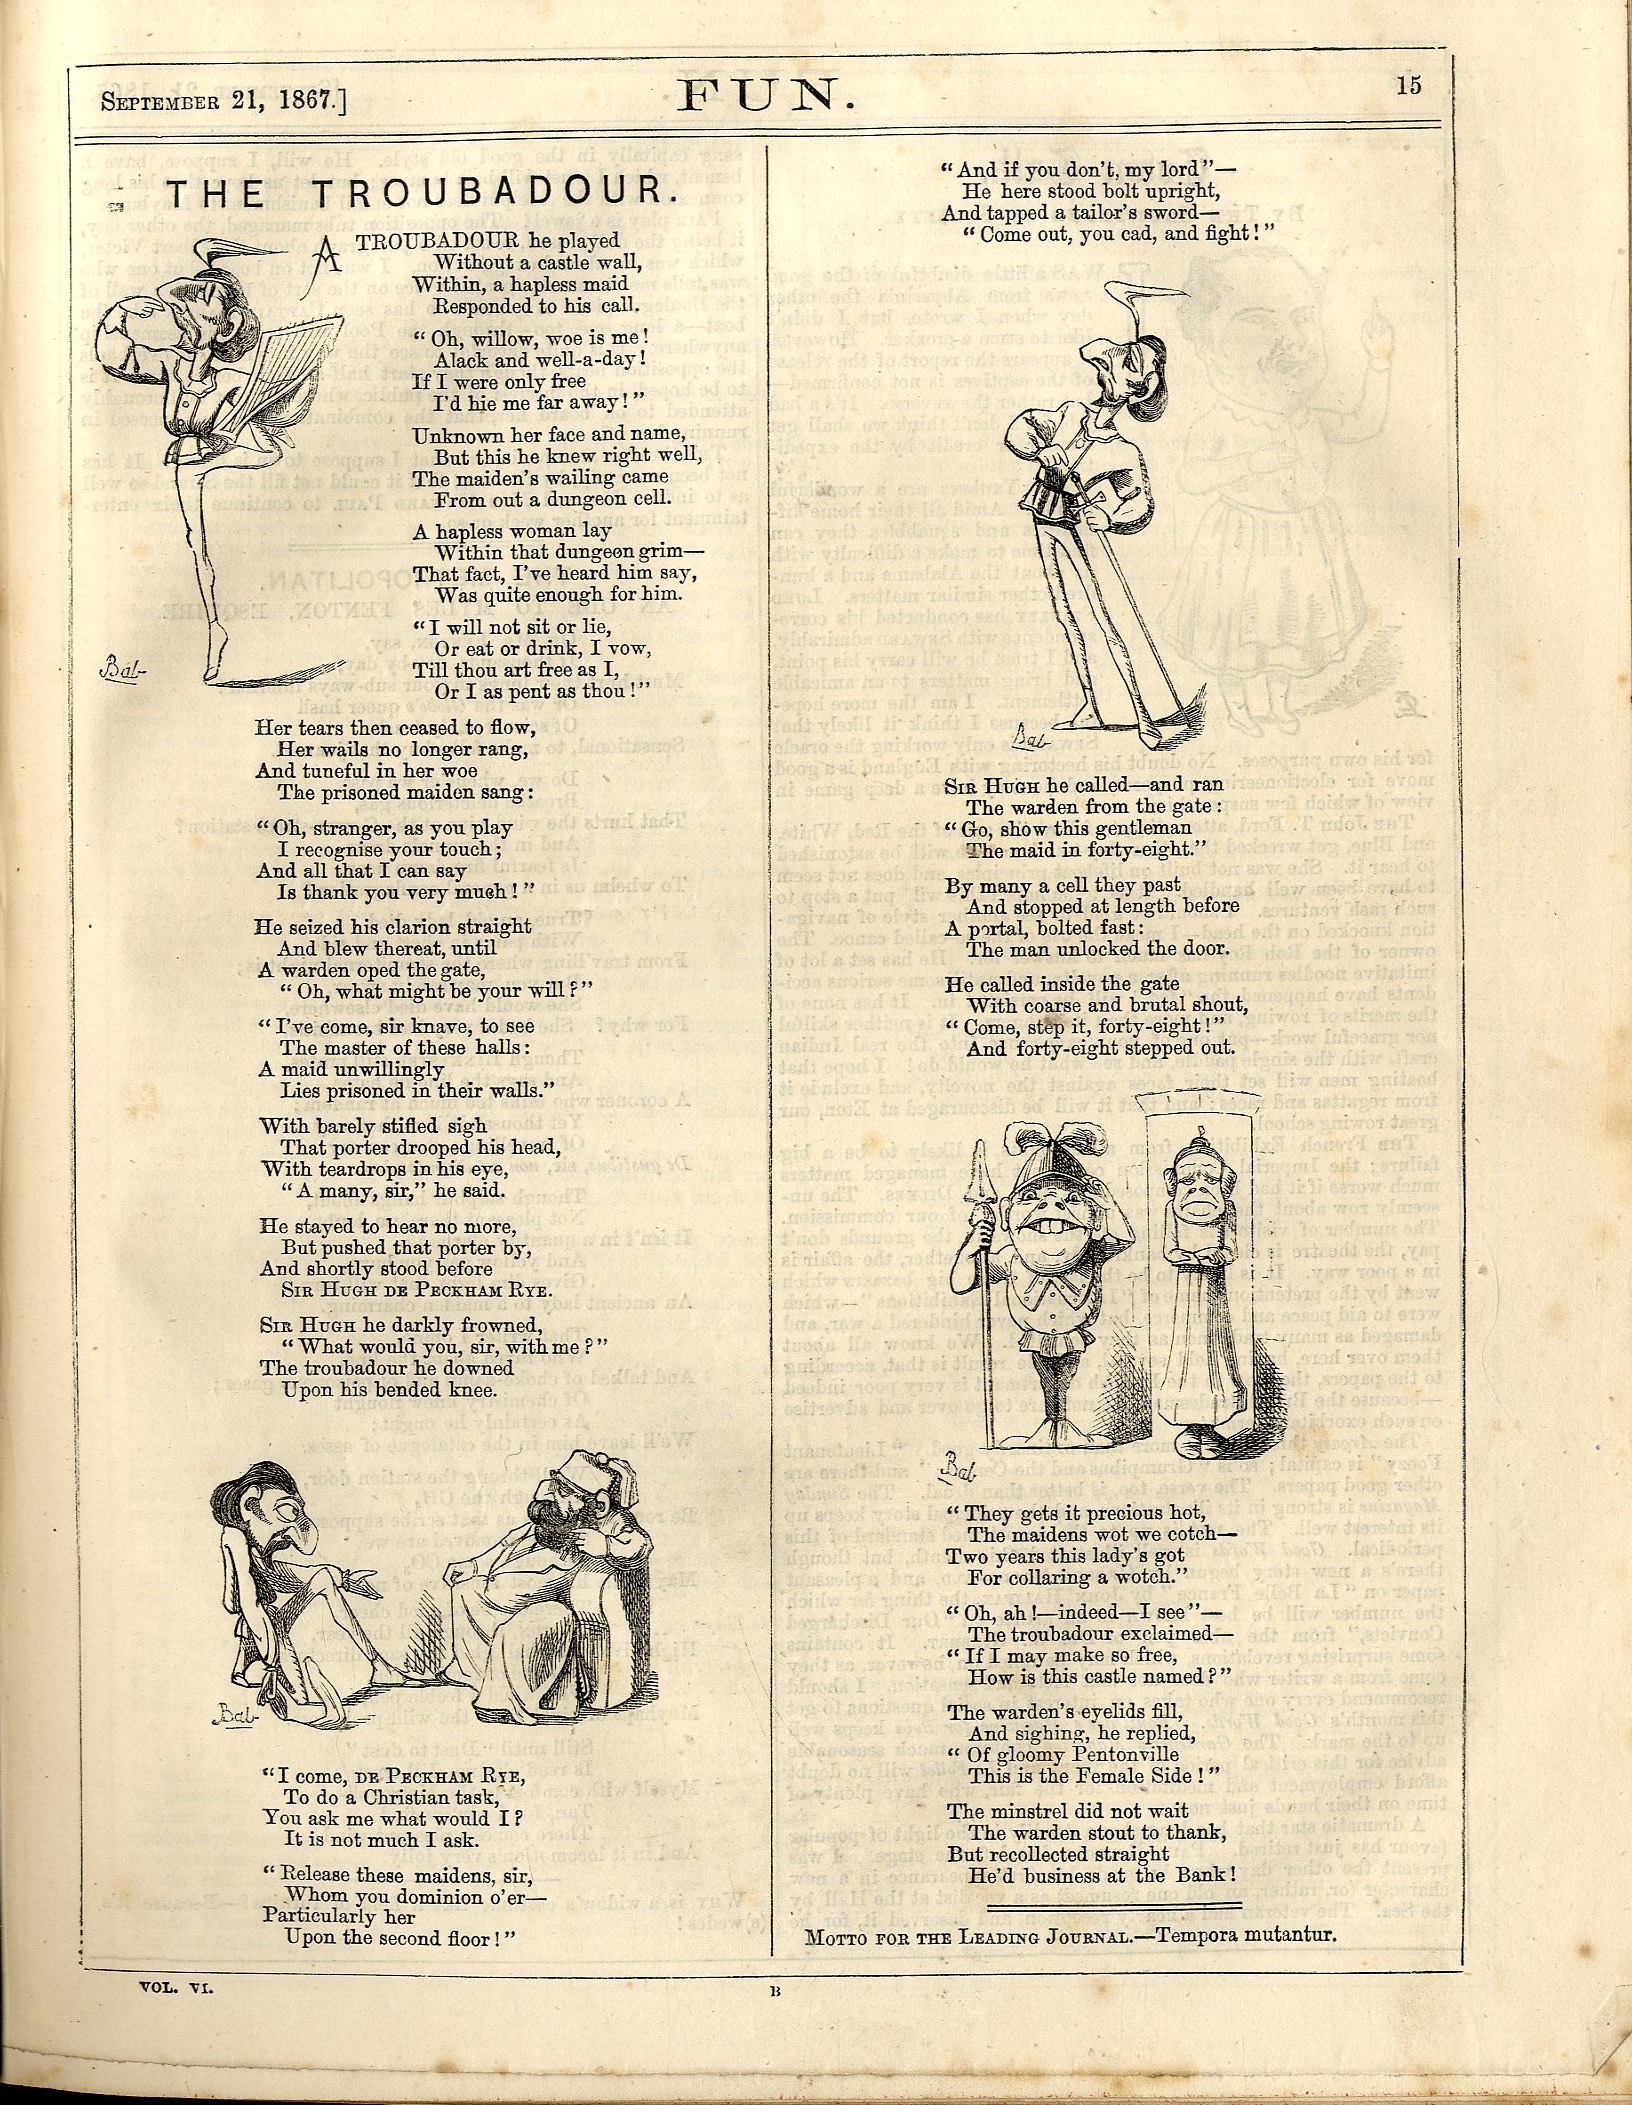 SEPTEMBER 21, 1867.]
FUN.
15
THE TROUBADOUR.
A TROUBADOUR he played
Without a castle wall,
Within, a hapless maid
Responded to his call.
“Oh, willow, woe is me!
Alack and well-a-day!
If I were only free
I'd hie me far away!”
Unknown her face and name,
But this he knew right well,
The maiden's wailing came
From out a dungeon cell.
A hapless woman lay
Within that dungeon grim—
That fact, I've heard him say,
Was quite enough for him.
“I will not sit or lie,
Or eat or drink, I vow,
Till thou art free as I,
Or I as pent as thou!”
Bab
Her tears then ceased to flow,
Her wails no longer rang,
And tuneful in her woe
The prisoned maiden sang:
“Oh, stranger, as you play
I recognise your touch;
And all that I can say
Is thank you very much!”
He seized his clarion straight
And blew thereat, until
A warden oped the gate,
“Oh, what might be your will?”
“I've come, sir knave, to see
The master of these halls:
A maid unwillingly
Lies prisoned in their walls.”
With barely stifled sigh
That porter drooped his head,
With teardrops in his eye,
“A many, sir,” he said.
He stayed to hear no more,
But pushed that porter by,
And shortly stood before
SIR HUGH DE PECKHAM RYE.
SIR HUGH he darkly frowned,
“What would you, sir, with me?”
The troubadour he downed
Upon his bended knee.
Bab
“I come, DE PECKHAM RYE,
To do a Christian task,
You ask me what would I?
It is not much I ask.
“Release these maidens, sir,
Whom you dominion o'er—
Particularly her
Upon the second floor!”
“And if you don't, my lord”—
He here stood bolt upright,
And tapped a tailor's sword—
“Come out, you cad, and fight!”
Bab
SIR HUGH he called—and ran
The warden from the gate:
“Go, show this gentleman
The maid in forty-eight.”
By many a cell they past
And stopped at length before
A portal, bolted fast:
The man unlocked the door.
He called inside the gate
With coarse and brutal shout,
“Come, step it, forty-eight!”
And forty-eight stepped out.
Bab
“They gets it precious hot,
The maidens wot we cotch—
Two years this lady's got
For collaring a wotch.”
“Oh, ah!—indeed—I see”—
The troubadour exclaimed—
“If I may make so free,
How is this castle named?”
The warden's eyelids fill,
And sighing, he replied,
“Of gloomy Pentonville
This is the Female Side!”
The minstrel did not wait
The warden stout to thank,
But recollected straight
He'd business at the Bank!
MOTTO FOR THE LEADING JOURNAL.—Tempora mutantur.
VOL. VI.
B